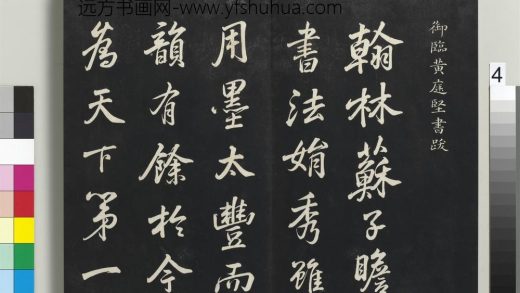 远方书画网-www.yfshuhua.com
御臨黄庭堅書跋
翰林蘇子瞻
書法娟秀雖
用墨太豐而
韻有餘於今
為天下第一
4